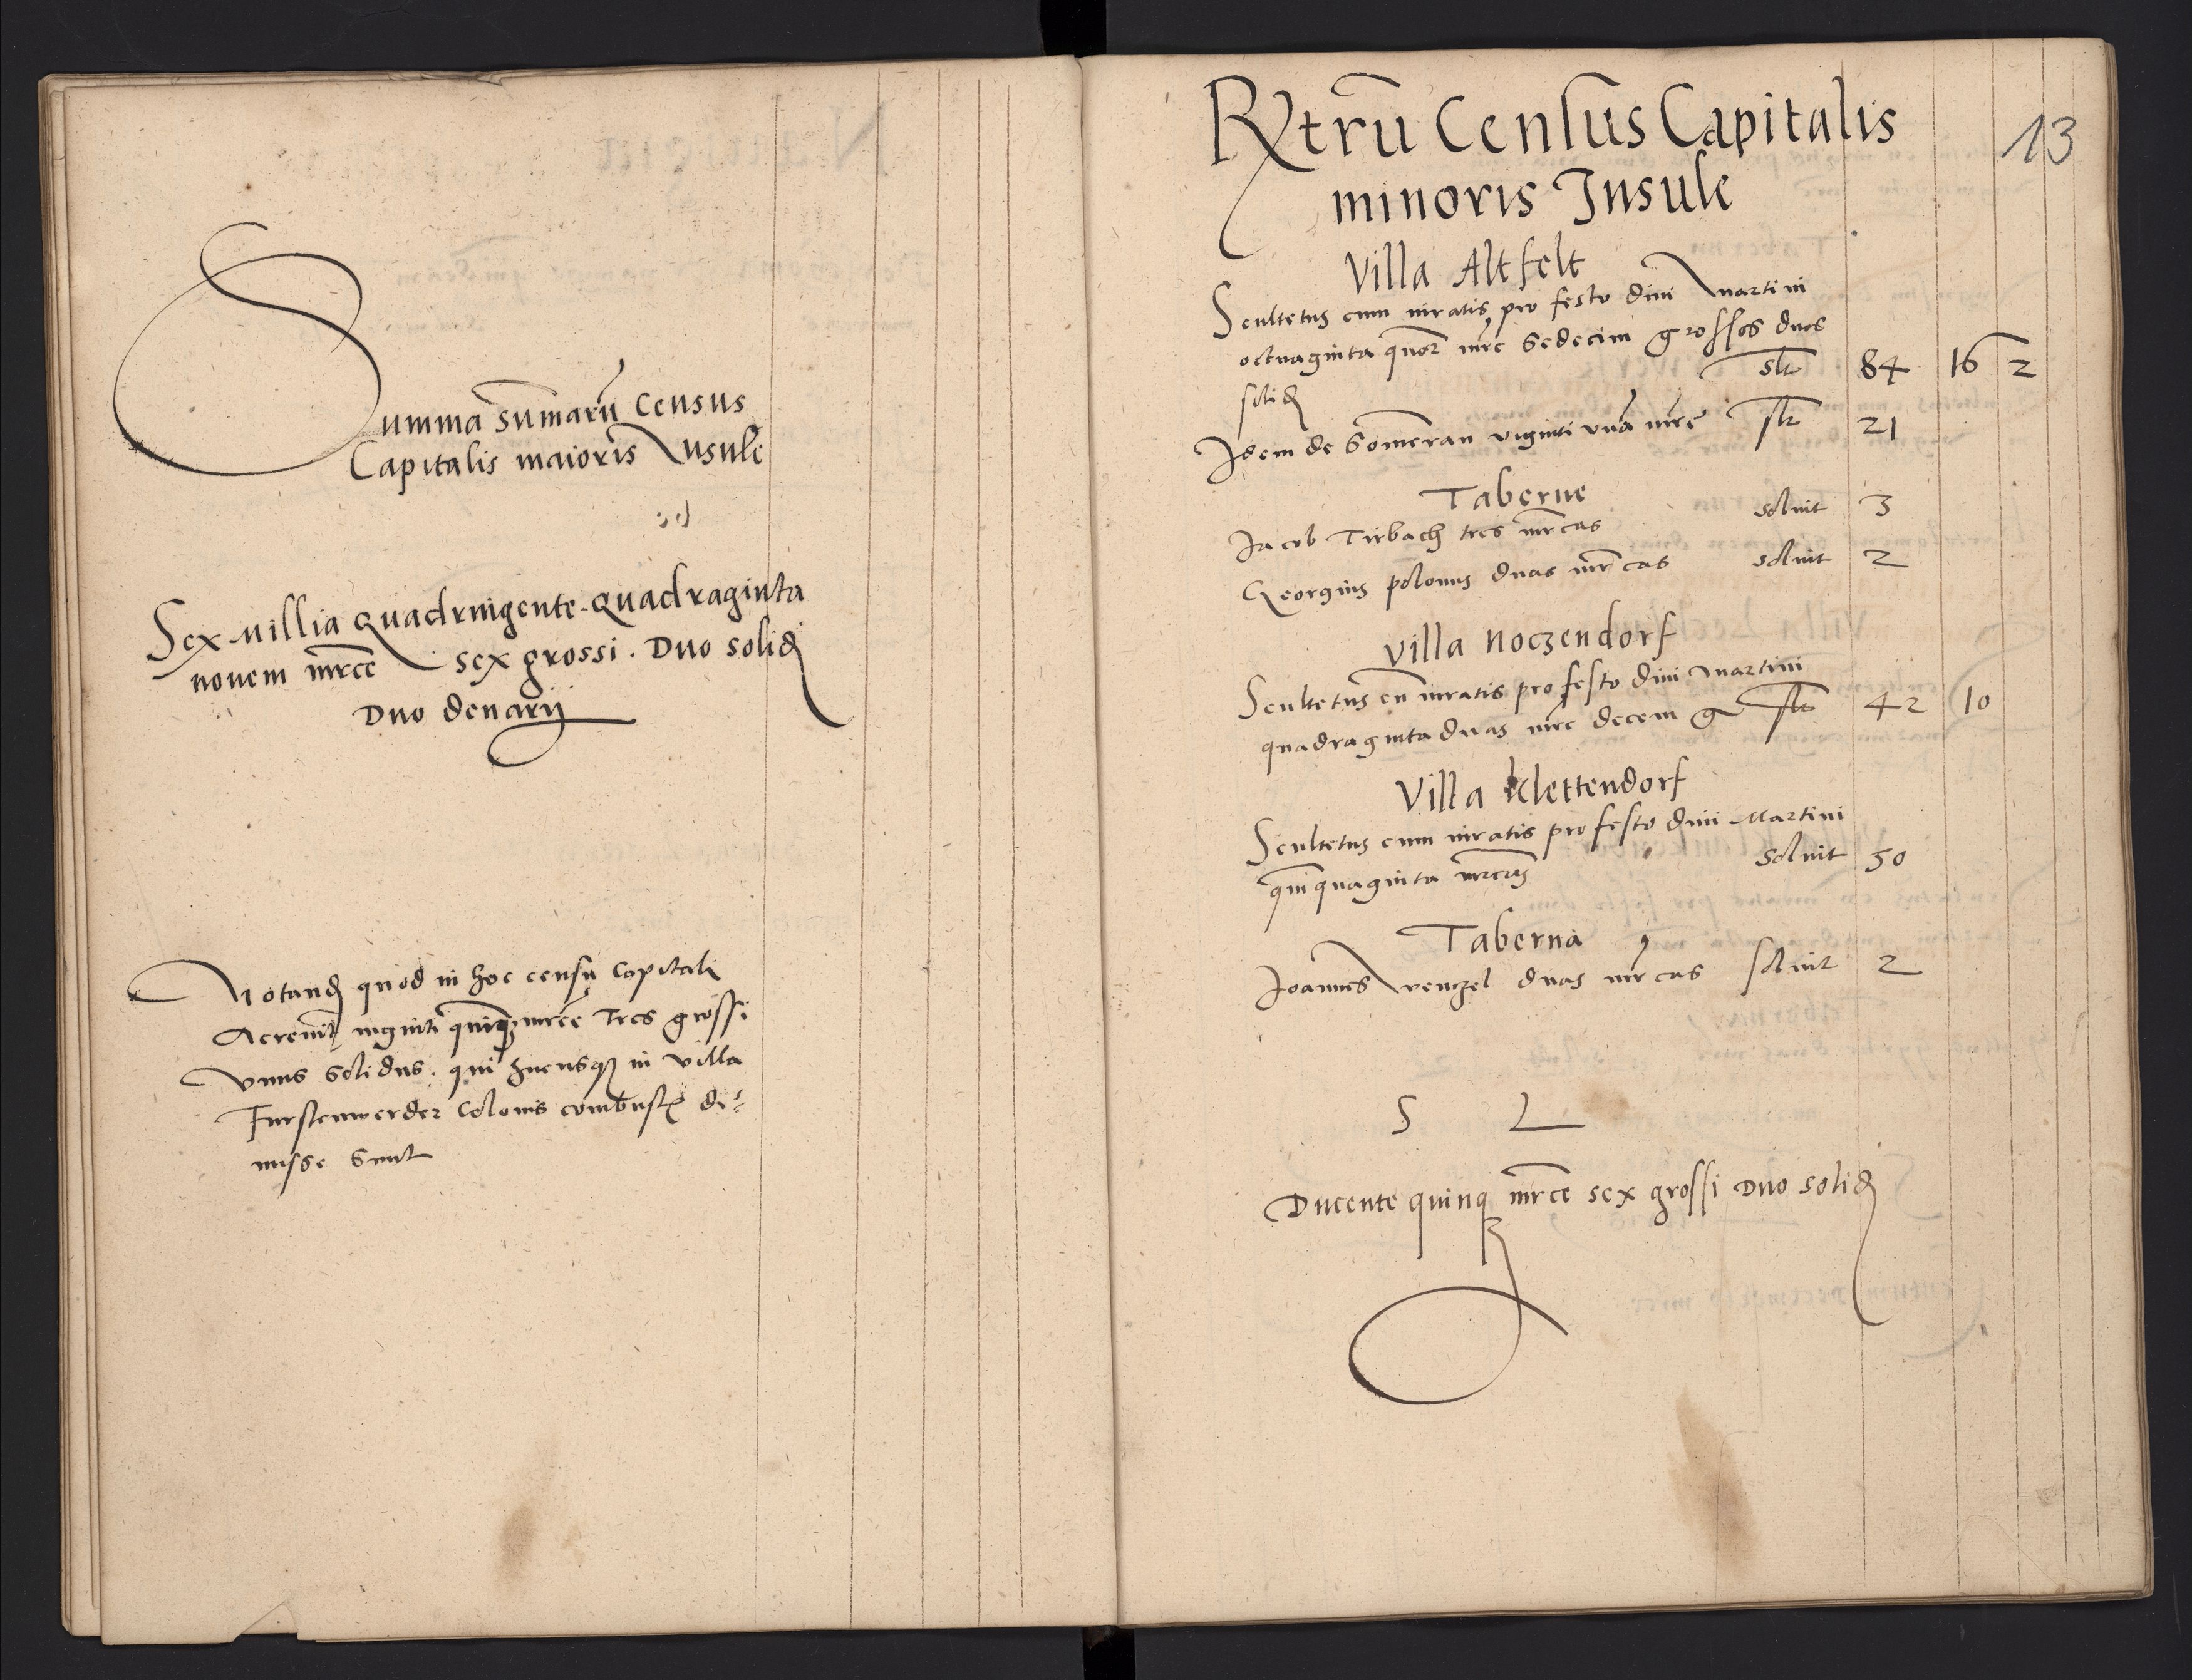 Summa su̅maru̅ Census
Capitalis maioris Insule
Sex Millia Quadringente Quadraginta
novem mrce sex grossi . Duo solid
Duo denarij
Notand quod in hoc censu Capitali
Acrevit viginti quinq mrce Tres grossi
vnus Solidus . qui hucusq in villa
Furstenwerder Colonis combustis di=
misse Sunt
13
Rxtru̅ Census Capitalis
minoris Insule
Villa Altfelt
Scultetus cum iuratis pro festo divi Martini
octuaginta quor mrc Sedecim grossos duos
solid slt 84 16 2
Idem de Someran viginti vna mrc slt 21
Taberne
Jacob Tirbach tres mrcas soluit 3
Georgius polonus duas mrcas soluit 2
Villa Noczendorf
Scultetus cu̅ iuratis pro festo divi Martini
quadraginta duas mrc decem g slt 42 10
Villa Klettendorf
Scultetus cum iuratis pro festo divi Martini
quinquaginta mrcas soluit 50
Taberna
Joannes Wenczel duas mrcas soluit 2
S L
Ducente quinq mrce sex grossi Duo solid